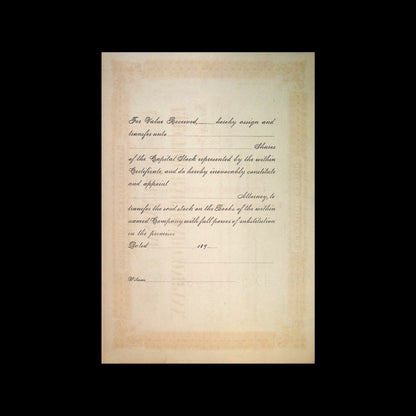 For Value Received, ____ hereby assign and
transfer unto
Shares
of the Capital Stock represented by the within
Certificate, and do hereby irrevocably constitute
and appoint
Attorney, to
transfer the said stock on the Books of the within
named Company with full power of substitution
in the premises
Dated 189
Witness